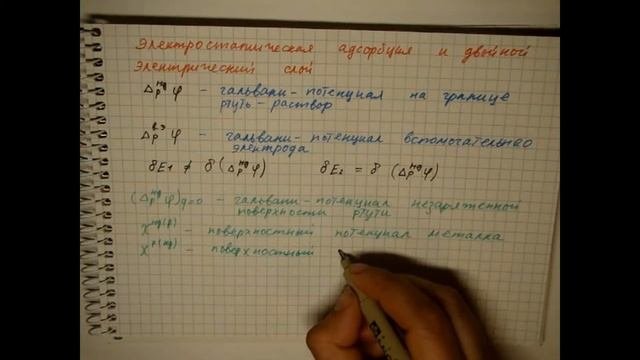 Электростатическая адсорбция и двойной
электрический слой
Δ_р^Hg φ – гальвани-потенциал на границе
ртуть-раствор
Δ_р^вэ φ – гальвани-потенциал вспомогательного
электрода
δE₁ ≠ δ(Δ_р^Hg φ) δE₂ = δ (Δ_р^Hg φ)
(Δ_р^Hg φ)q=0 – гальвани-потенциал незаряженной
поверхности ртути
χ^Hg(р) – поверхностный потенциал металла
χ^р(Hg) – поверхностный